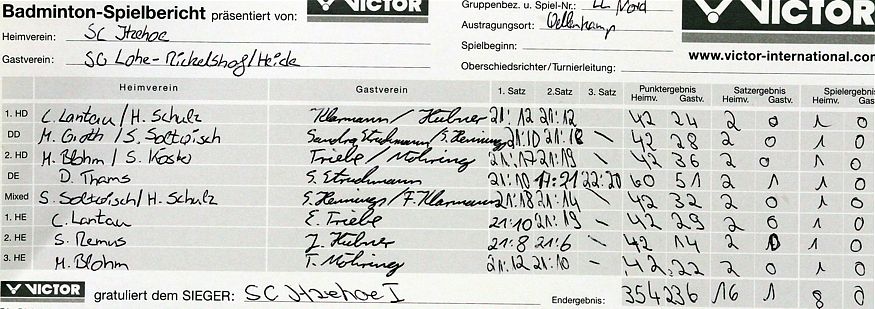 Badminton-Spielbericht präsentiert von: VICTOR
Gruppenbez. u. Spiel-Nr.: LL Nord
VICTOR
Heimverein: SC Itzehoe
Austragungsort: Dellenkamp
Gastverein: SG Lohe-Rickelshof/Heide
Spielbeginn:
www.victor-international.com
Oberschiedsrichter/Turnierleitung:
Heimverein Gastverein 1. Satz 2. Satz 3. Satz Punktergebnis Heimv. Gastv. Satzergebnis Heimv. Gastv. Spielergebnis Heimv. Gastv.
1. HD C. Lantau / H. Schulz Klarmann / Hubner 21:12 21:12 42 24 2 0 1 0
DD M. Groth / S. Soltwisch Sandra Struhmann / S. Hennings 21:10 21:18 \ 42 28 2 0 1 0
2. HD M. Blohm / S. Koske Triebe / Möhring 21:17 21:19 \ 42 36 2 0 1 0
DE D. Thams S. Struhmann 21:10 17:21 22:20 60 51 2 1 1 0
Mixed S. Soltwisch / H. Schulz S. Hennings / F. Klarmann 21:18 21:14 \ 42 32 2 0 1 0
1. HE C. Lantau E. Triebe 21:10 21:19 \ 42 29 2 0 1 0
2. HE S. Remus J. Hubner 21:8 21:6 \ 42 14 2 0 1 0
3. HE M. Blohm T. Möhring 21:12 21:10 \ 42 22 2 0 1 0
VICTOR gratuliert dem SIEGER: SC Itzehoe I Endergebnis: 354 236 16 1 8 0